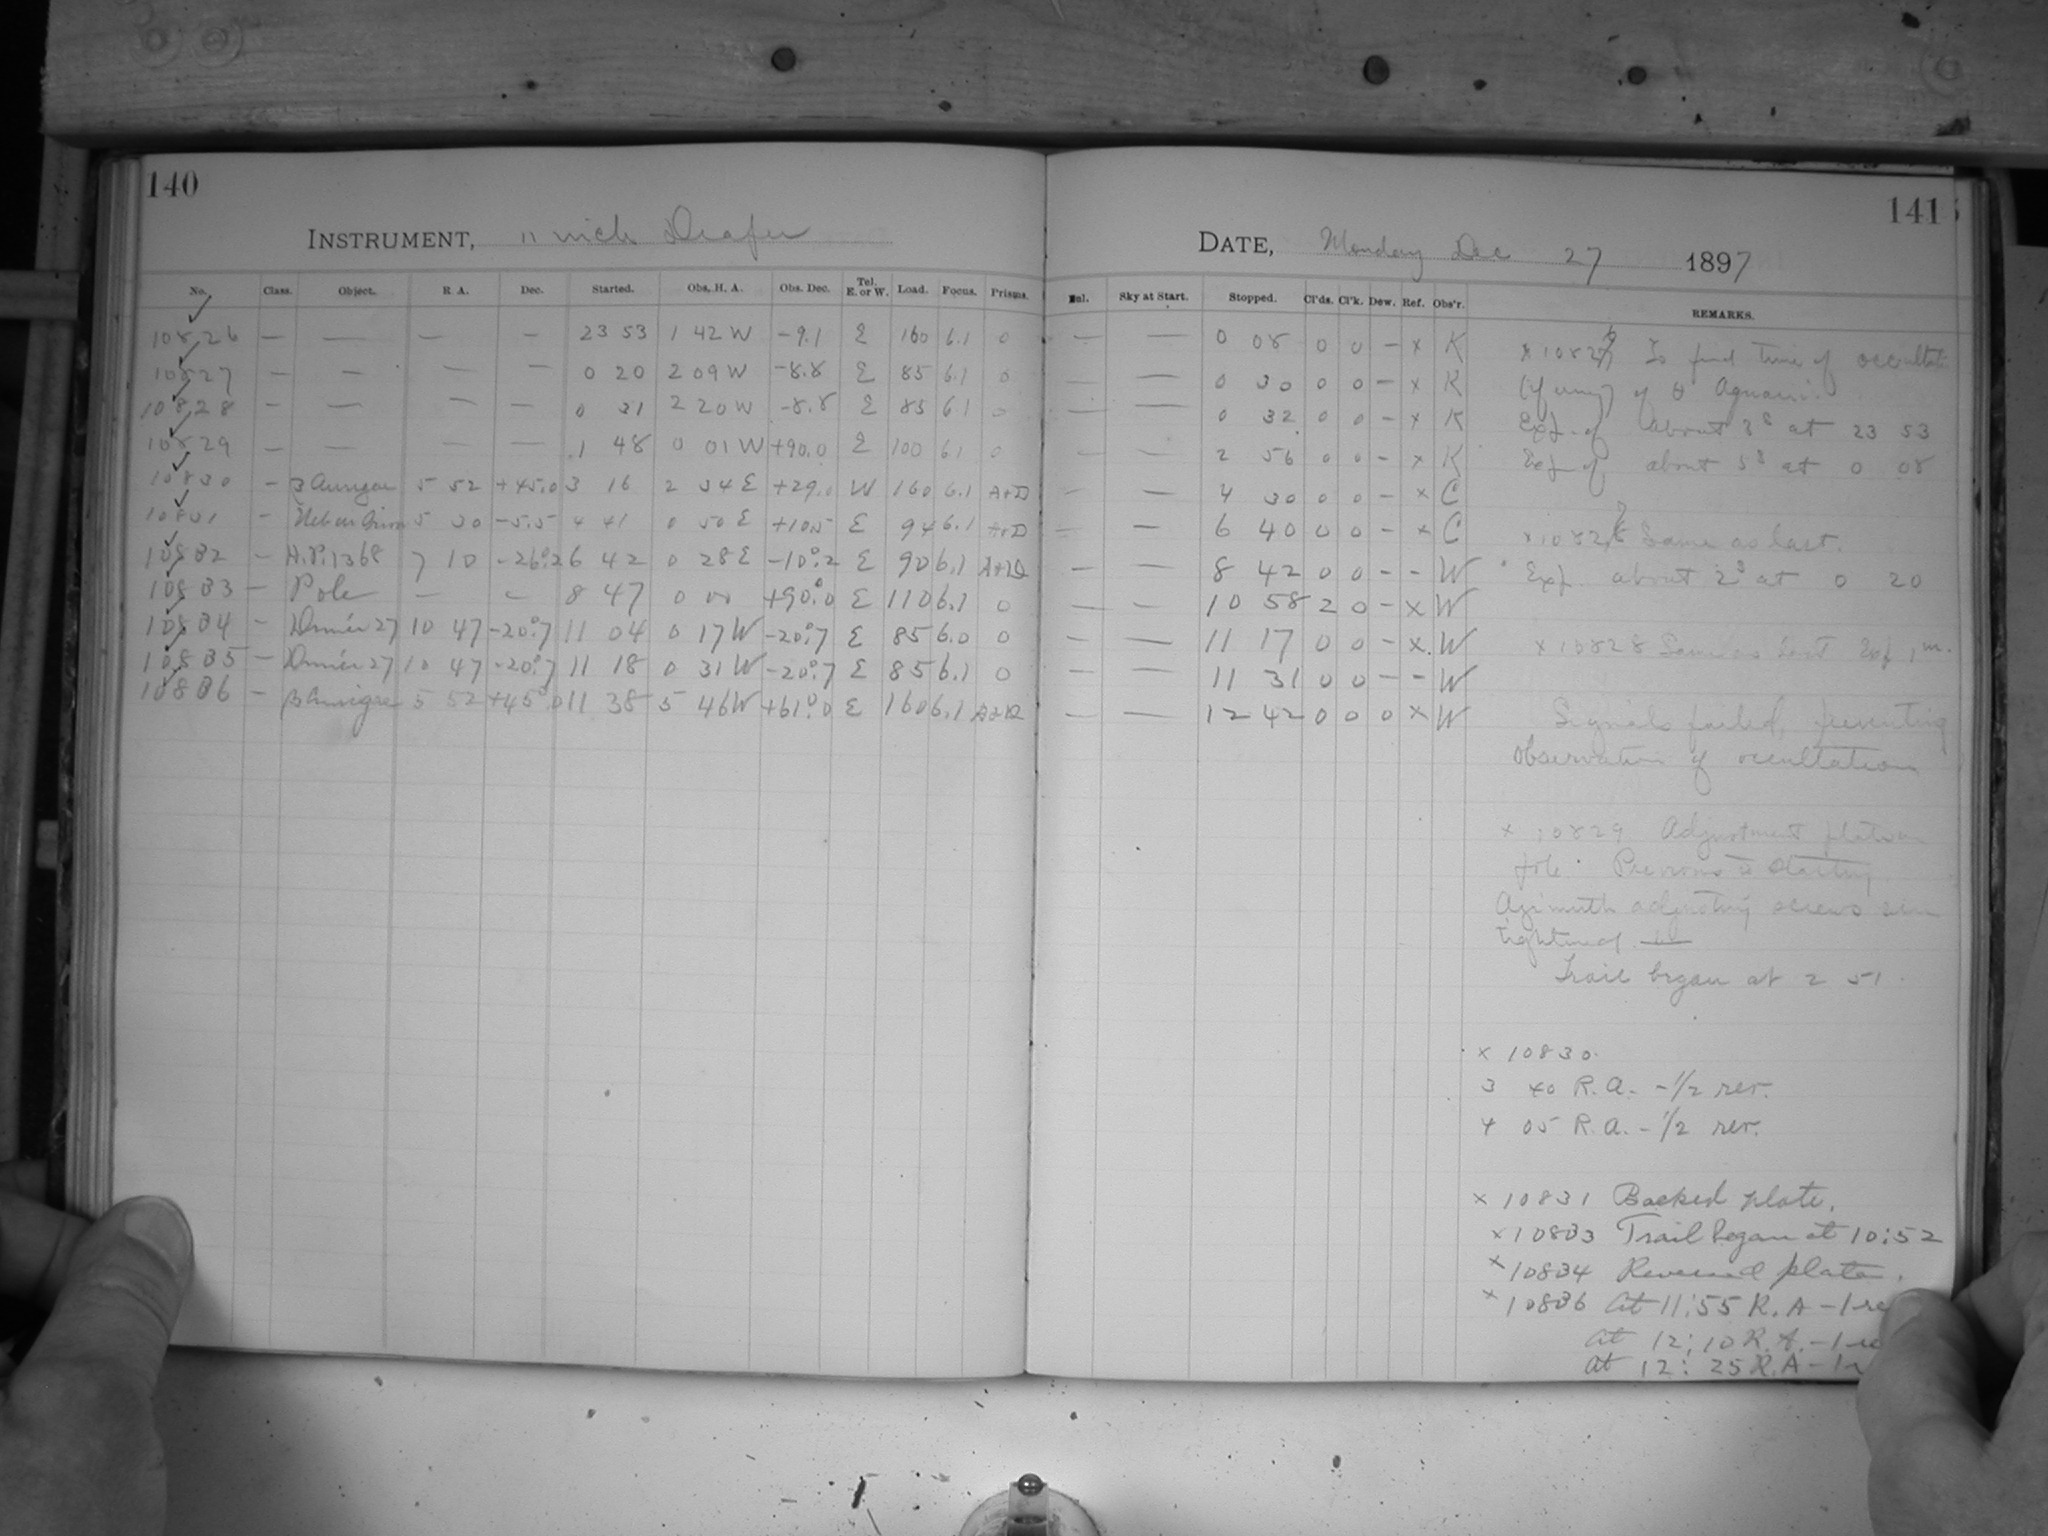 140
INSTRUMENT, 11 inch Draper
No. Class. Object. R. A. Dec. Started. Obs. H. A. Obs. Dec. Tel. E. or W. Load. Focus. Prisms.
10826 — — — — 23 53 1 42 W -9.1 E 160 6.1 0
10827 — — — — 0 20 2 09 W -8.8 E 85 6.1 0
10828 — — — — 0 31 2 20 W -8.8 E 85 6.1 0
10829 — — — — 1 48 0 01 W +90.0 E 100 6.1 0
10830 — β Aurigae 5 52 +45.0 3 16 2 34 E +29.0 W 160 6.1 A+D
10831 — Neb in Orion 5 30 -5.5 4 41 0 50 E +10.5 E 94 6.1 A+D
10832 — H.P. 1368 7 10 -26°.2 6 42 0 28 E -10°.2 E 90 6.1 A+D
10833 — Pole — — 8 47 0 00 +90°.0 E 110 6.1 0
10834 — Dunér 27 10 47 -20°.7 11 04 0 17 W -20°.7 E 85 6.0 0
10835 — Dunér 27 10 47 -20°.7 11 18 0 31 W -20°.7 E 85 6.1 0
10836 — β Aurigae 5 52 +45°.0 11 38 5 46 W +61°.0 E 160 6.1 A+D
141
DATE, Monday Dec 27 1897
Enl. Sky at Start. Stopped. Cl'ds. Cl'k. Dew. Ref. Obs'r. REMARKS.
— — 0 08 0 0 — x K
— — 0 30 0 0 — x K
— — 0 32 0 0 — x K
— — 2 56 0 0 — x K
— — 4 30 0 0 — x C
— — 6 40 0 0 — x C
— — 8 42 0 0 — — W
— — 10 58 2 0 — x W
— — 11 17 0 0 — x W
— — 11 31 0 0 — — W
— — 12 42 0 0 0 x W
x 10826 To find time of occultati
(if any) of θ Aquarii.
Exp. of about 3s at 23 53
Exp of about 5s at 0 08
x 10827 Same as last.
Exp. about 2s at 0 20
x 10828 Same as last Exp 1m.
Signals failed, preventing
observation of occultation
x 10829 Adjustment plate on
pole. Previous to starting
Azimuth adjusting screws were
tightened.
Trail began at 2 51.
x 10830.
3 40 R.A. -1/2 rev.
4 05 R.A. -1/2 rev.
x 10831 Backed plate.
x 10833 Trail began at 10:52
x 10834 Reversed plate.
x 10836 At 11:55 R.A -1 re
At 12:10 R.A. -1 re
At 12:25 R.A -1 r